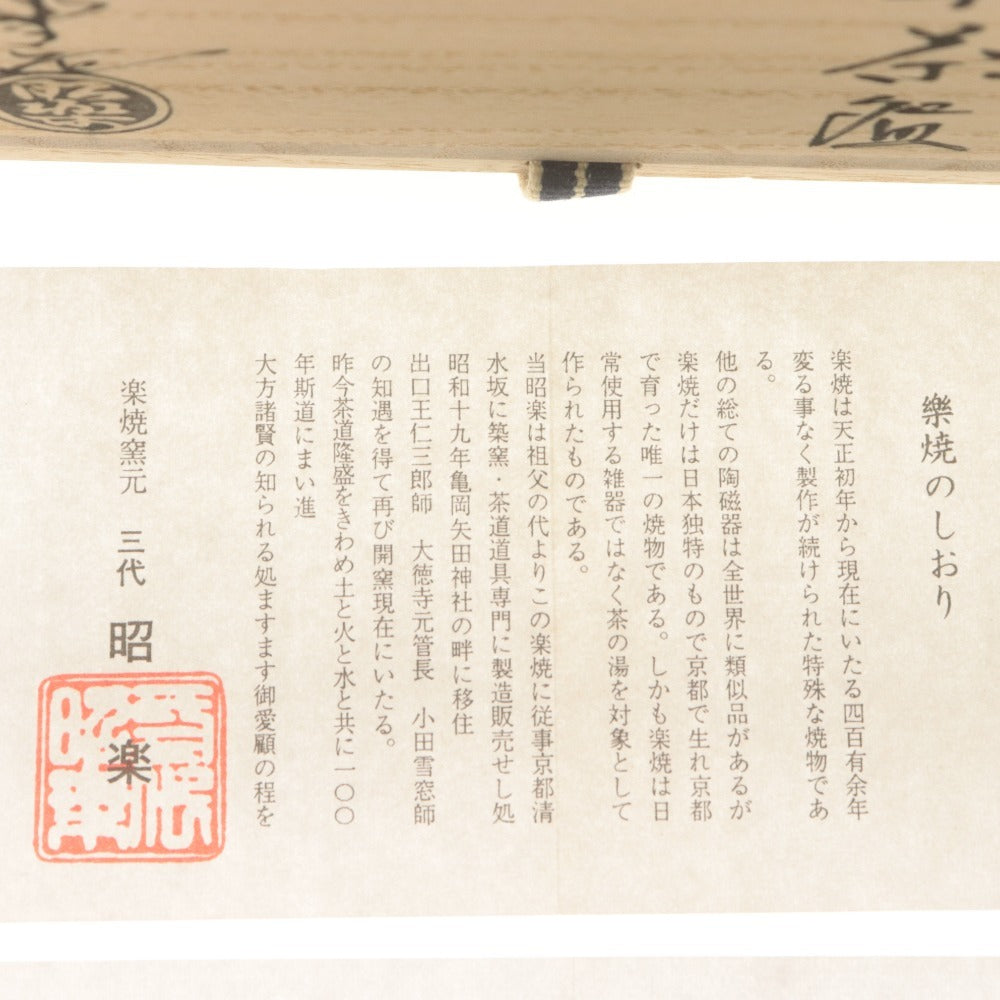 茶盌
昭楽
樂焼のしおり
楽焼は天正初年から現在にいたる四百有余年
変る事なく製作が続けられた特殊な焼物であ
る。
他の総ての陶磁器は全世界に類似品があるが
楽焼だけは日本独特のもので京都で生れ京都
で育った唯一の焼物である。しかも楽焼は日
常使用する雑器ではなく茶の湯を対象として
作られたものである。
当昭楽は祖父の代よりこの楽焼に従事京都清
水坂に築窯・茶道道具専門に製造販売せし処
昭和十九年亀岡矢田神社の畔に移住
出口王仁三郎師　大徳寺元管長　小田雪窓師
の知遇を得て再び開窯現在にいたる。
昨今茶道隆盛をきわめ土と火と水と共に一〇〇
年斯道にまい進
大方諸賢の知られる処ますます御愛顧の程を
楽焼窯元　三代　昭楽